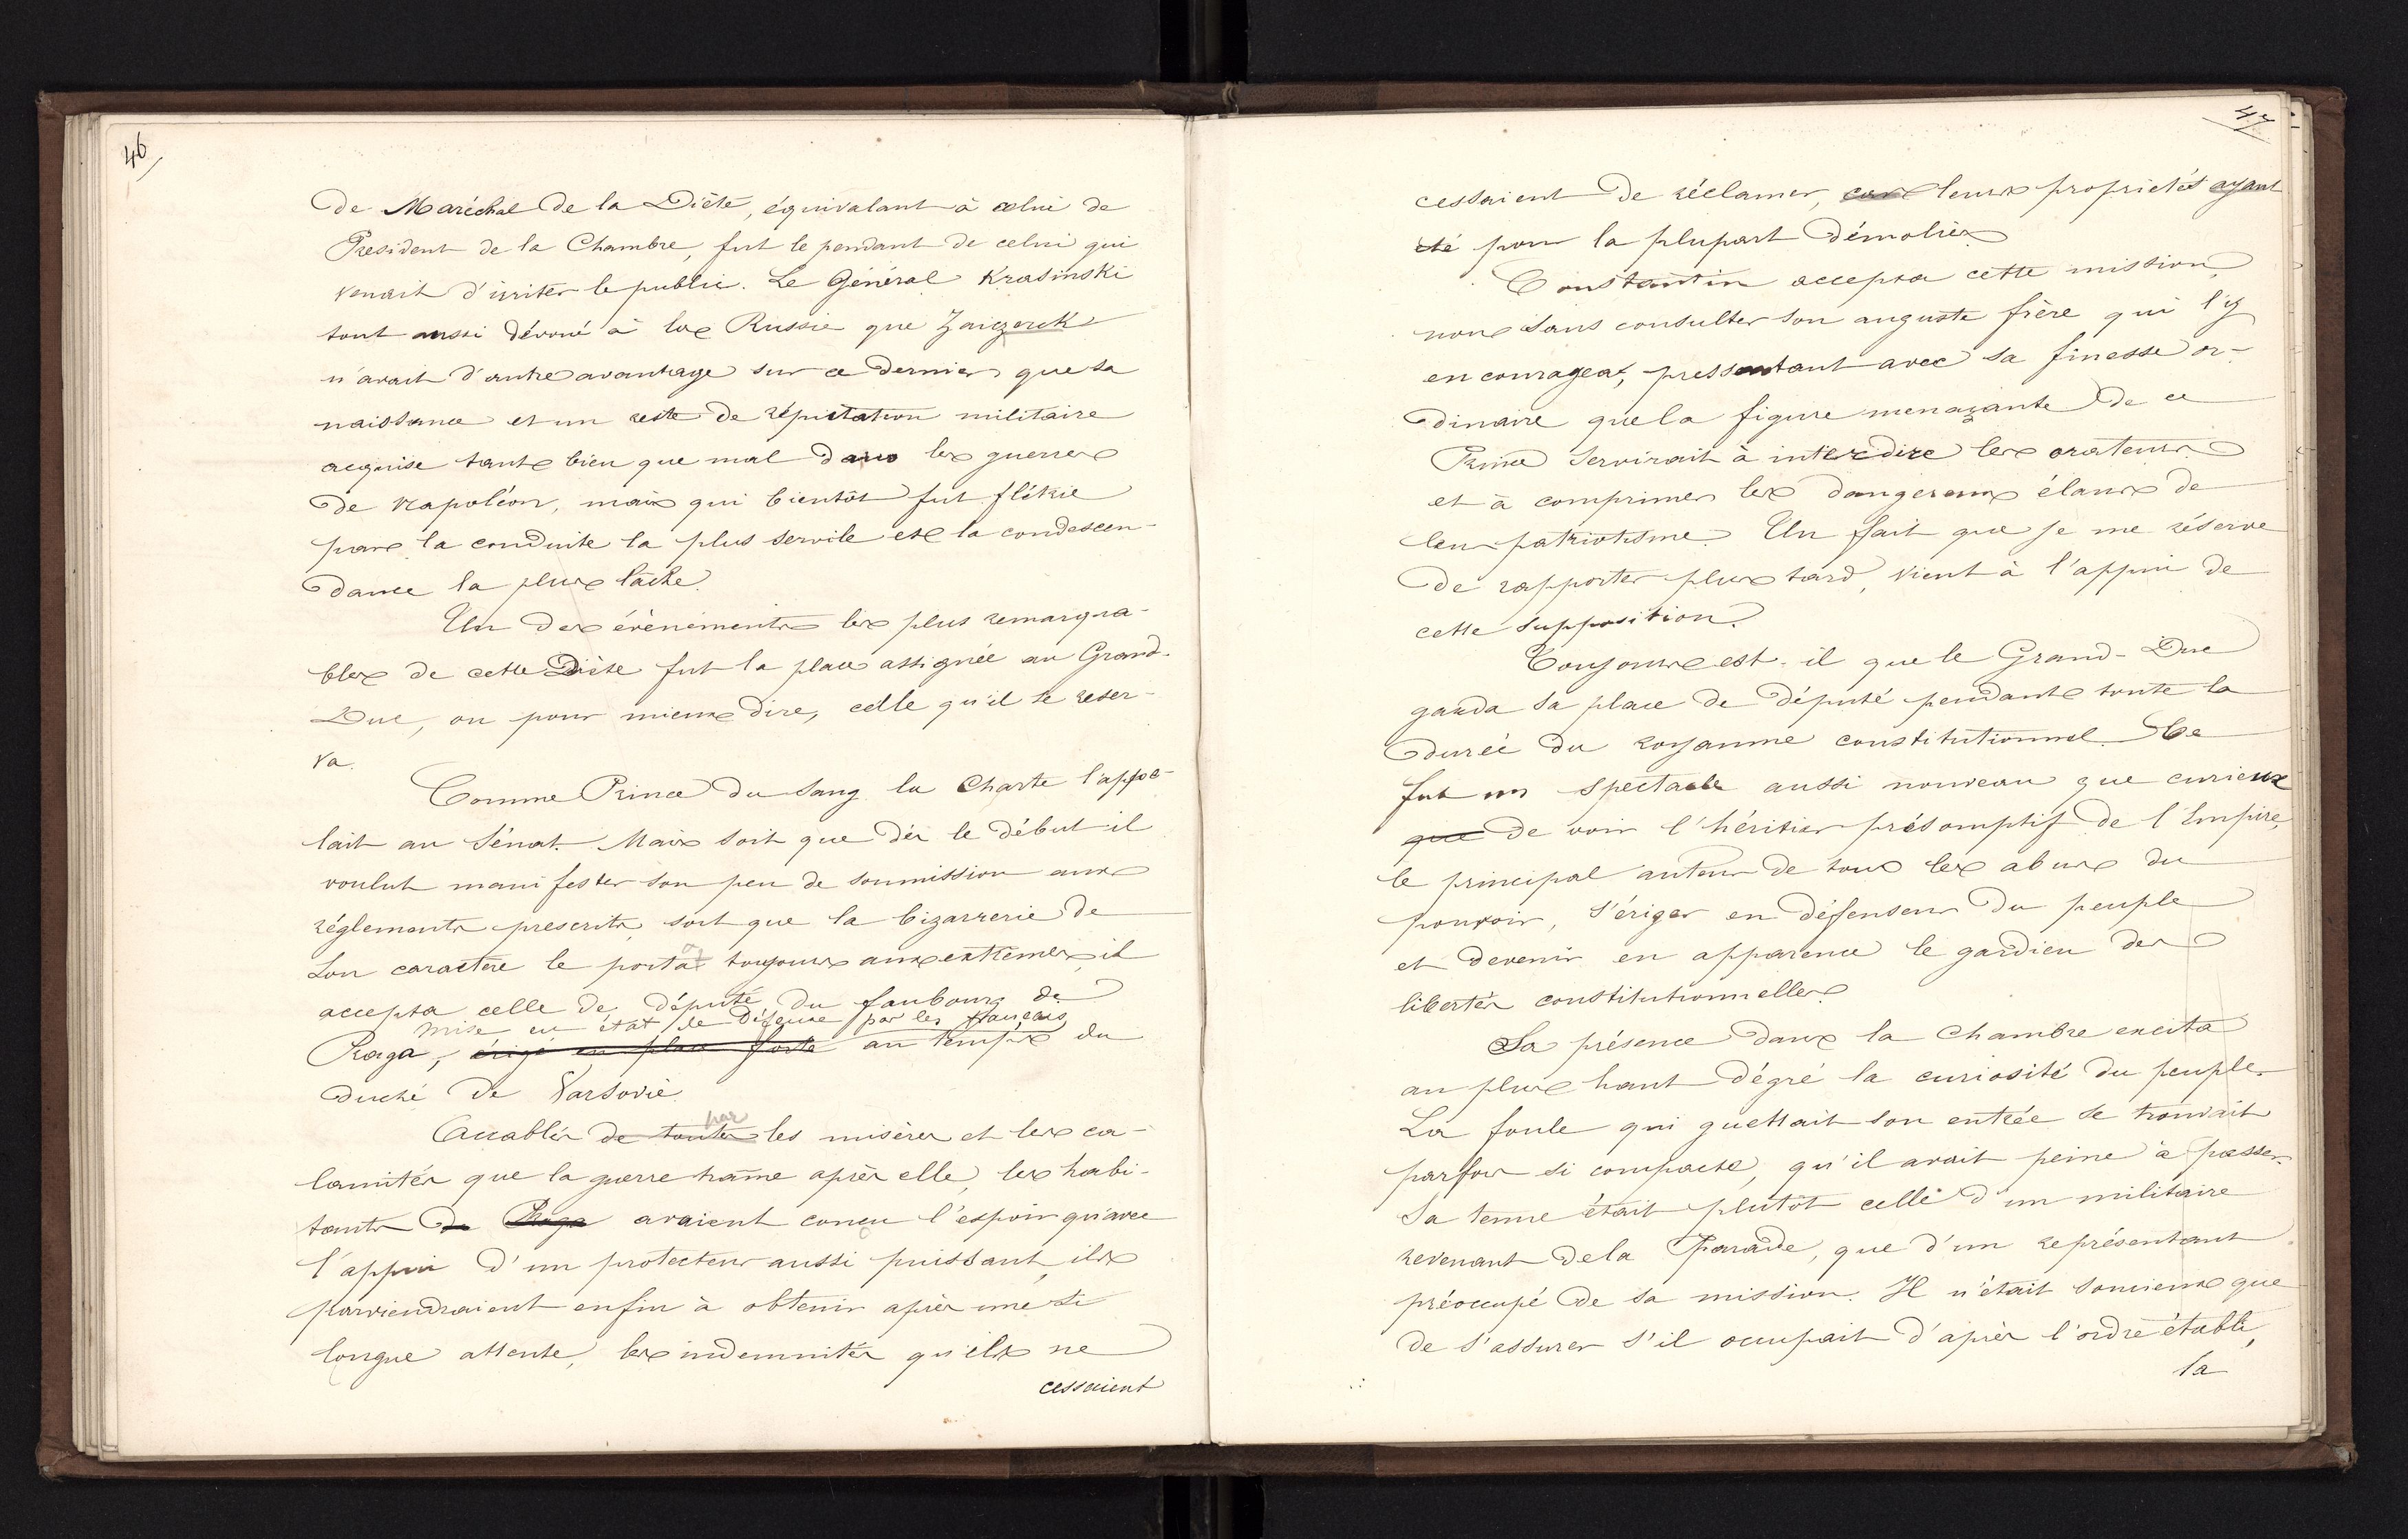 46
de Maréchal de la Diète, équivalant à celui de
President de la Chambre, fut le pendant de celui qui
venait d'iriter le public. Le Général Krasinski
tout aussi dévoué à la Russie que Zaiczeck
n'avait d'autre avantage sur ce dernier que sa
naissance et un reste de réputation militaire
acquise tant bien que mal dans les guerres
de Napoléon, mais qui bientôt fut flétrie
par la conduite la plus servile et la condescen-
dance la plus lâche.
Un des évènements les plus remarqua-
bles de cette Diète fut la place assignée au Grand-
Duc, ou pour mieux dire, celle qu'il se reser-
va.
Comme Prince du sang la Charte l'appe-
lait au Sénat. Mais soit que dès le début il
voulut manifester son peu de soumission aux
réglements prescrits, soit que la bizarrerie de
son caractère le portat toujours aux extrêmes, il
accepta celle de député du faubourg de
mise en état de défense par les français
Praga, érigé en place forte au temps du
duché de Varsovie.
par
Accablés de toutes les misères et les ca-
lamités que la guerre traine après elle, les habi-
tants de Praga avaient concu l'espoir qu'avec
l'appui d'un protecteur aussi puissant, ils
parviendraient enfin à obtenir après une si
longue attente, les indemnités qu'ils ne
cessaient
47
cessaient de réclamer, car leurs propriétés ayant
été pour la plupart démolies.
Constantin accepta cette mission,
non sans consulter son auguste frère qui l'y
encouragea, pressentant avec sa finesse or-
dinaire que la figure menaçante de ce
Prince servirait à interdire les orateurs
et à comprimer les dangereux élans de
leur patriotisme. Un fait que je me réserve
de rapporter plus tard, vient à l'appui de
cette supposition.
Toujours est-il que le Grand-Duc
garda sa place de député pendant toute la
durée du royaume constitutionnel. Ce
fut un spectacle aussi nouveau que curieux
que de voir l'héritier présomptif de l'Empire,
le principal auteur de tous les abus du
pouvoir, s'ériger en défenseur du peuple
et devenir en apparence le gardien des
libertés constitutionnelles.
Sa présence dans la Chambre excita
au plus haut dégré la curiosité du peuple.
La foule qui guettait son entrée se trouvait
parfois si compacte, qu'il avait peine à passer.
Sa tenue était plutôt celle d'un militaire
revenant de la Parade, que d'un représentant
préoccupé de sa mission. Il n'était soucieux que
de s'assurer s'il occupait d'après l'ordre établi,
la